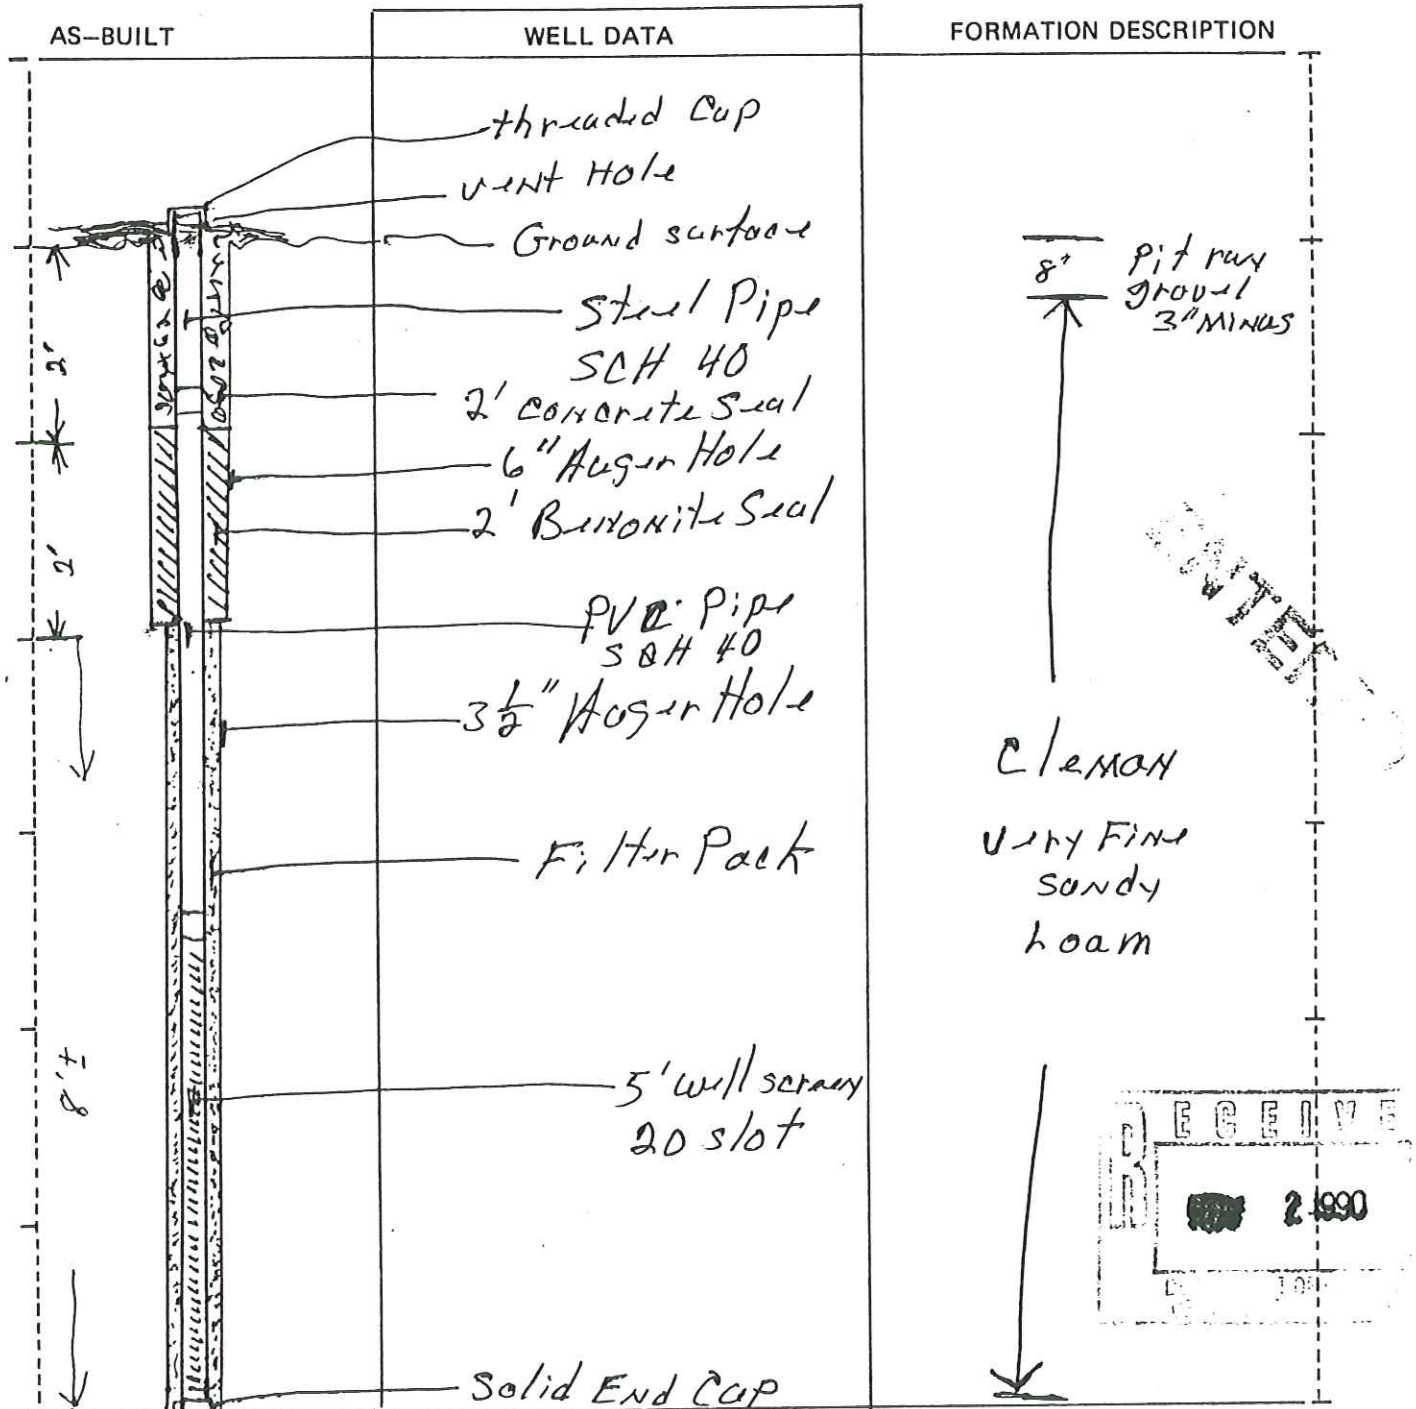 AS-BUILT
WELL DATA
FORMATION DESCRIPTION
threaded Cap
vent Hole
Ground surface
Steel Pipe
SCH 40
2' Concrete Seal
6" Auger Hole
2' Benonite Seal
PVC Pipe
SCH 40
3 1/2" Auger Hole
Filter Pack
5' well screen
20 slot
Solid End Cap
2'
2'
8' ±
8" Pit run
gravel
3" Minus
Cleman
Very Fine
Sandy
Loam
ENTE
RECEIVE
2 1990